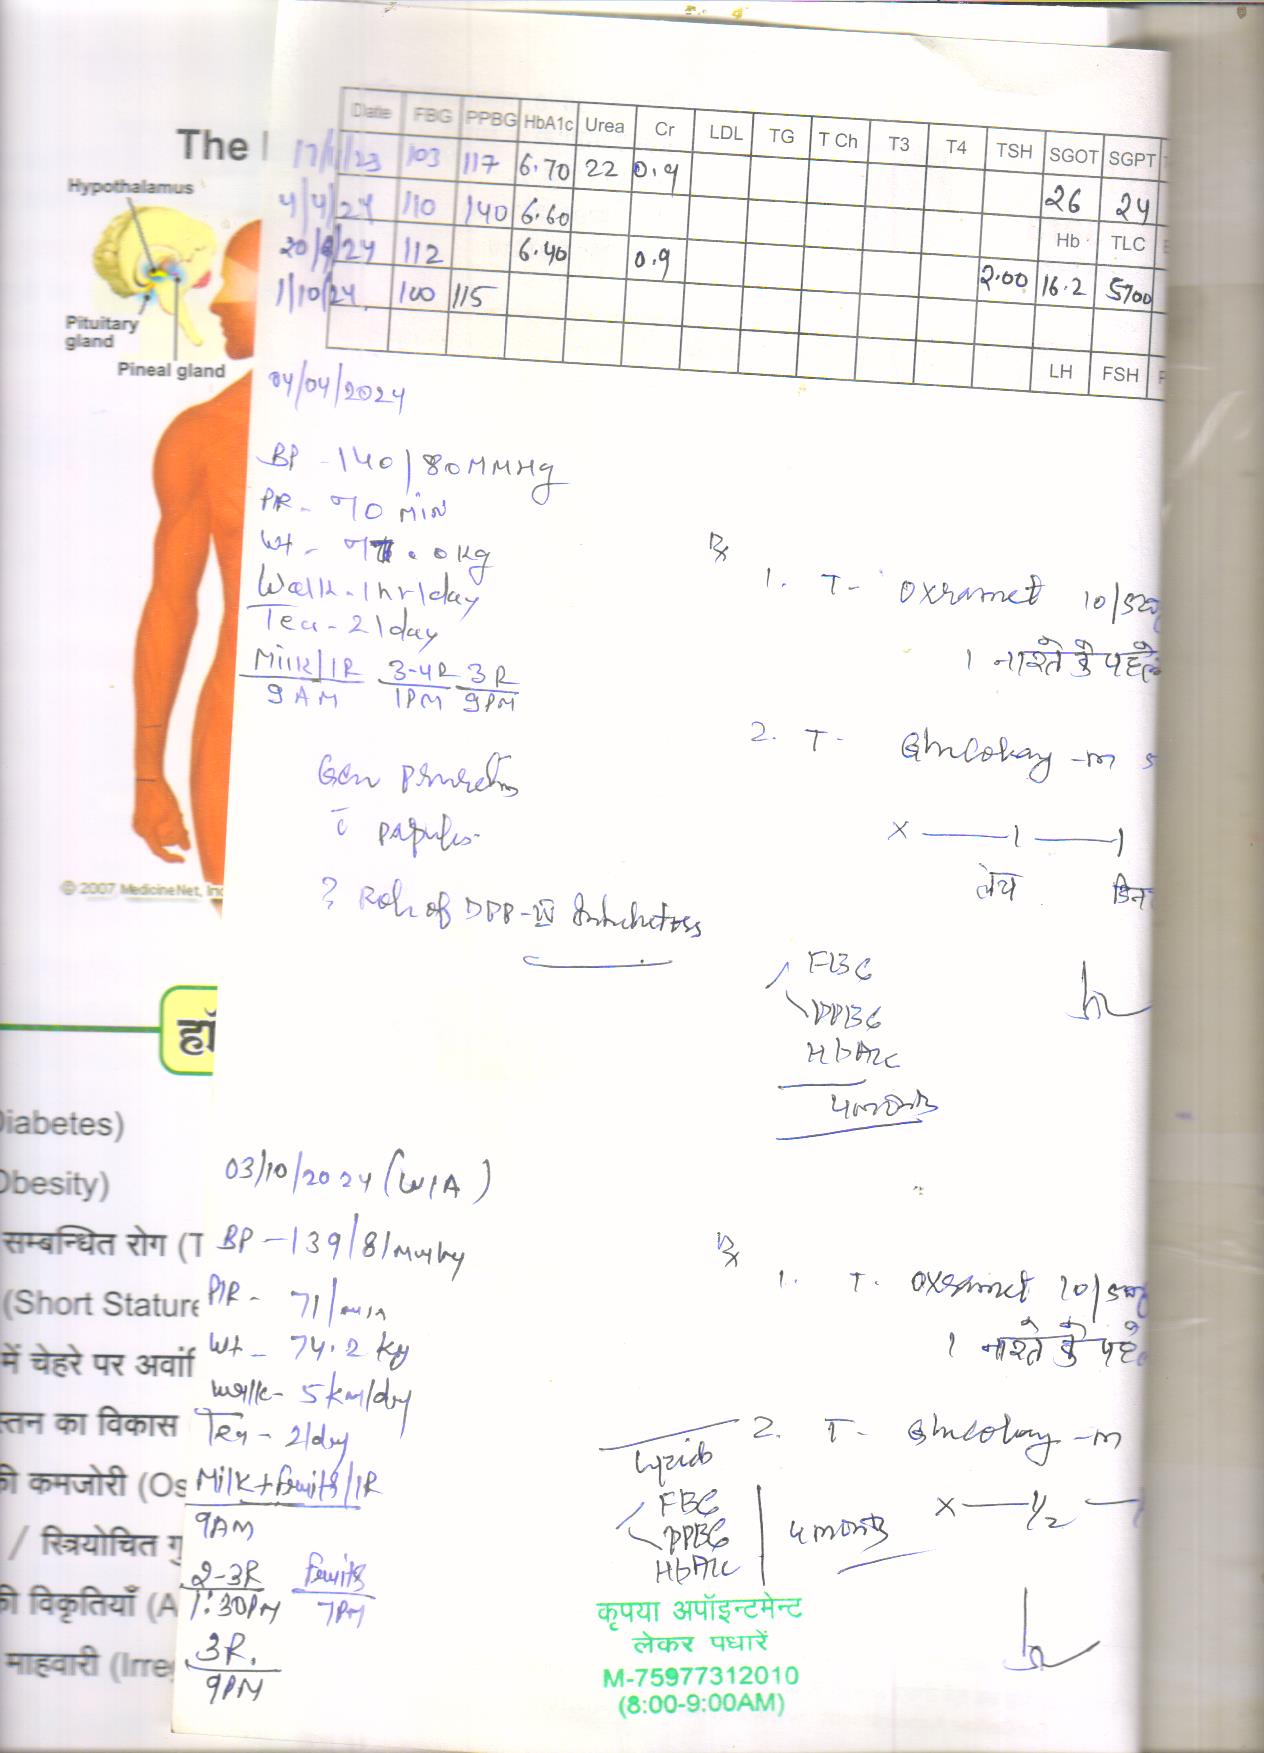 The
Hypothalamus
Pituitary
gland
Pineal gland
© 2007 MedicineNet, Inc
Date FBG PPBG HbA1c Urea Cr LDL TG T Ch T3 T4 TSH SGOT SGPT
103 117 6.70 22 0.9 26 24
4/4/24 110 140 6.60 Hb TLC
112 6.40 0.9 2.00 16.2 5700
1/10/24 100 115
LH FSH
04/04/2024
BP - 140/80 MMHg
PR - 70 MIN
Wt - .0 kg
Walk - 1hr/day
Tea - 2/day
Milk/1R 3-4R 3R
9AM 1PM 9PM
Gen
c papules
? Role of DPP-IV
Rx
1. T- Oxramet 10/500
1 नाश्ते के पहले
2. T- -m
x — 1 — 1
FBG
PPBG
HbA1c
4 months
हॉ
Diabetes)
Obesity)
सम्बन्धित रोग (T
(Short Stature
में चेहरे पर अवांि
स्तन का विकास
की कमजोरी (Os
/ स्त्रियोचित गु
की विकृतियाँ (A
माहवारी (Irre
03/10/2024 (W/A)
BP - 139/81 mmHg
P/R - 71/min
Wt - 74.2 kg
Walk - 5km/day
Tea - 2/day
Milk+fruits/1R
9AM
2-3R fruits
1:30PM 7PM
3R.
9PM
Rx
1. T. Oxramet 10/500
1 नाश्ते के पहले
2. T- -m
x — 1/2 —
Lipids
FBG
PPBG
HbA1c
4 months
कृपया अपॉइन्टमेन्ट
लेकर पधारें
M-75977312010
(8:00-9:00AM)